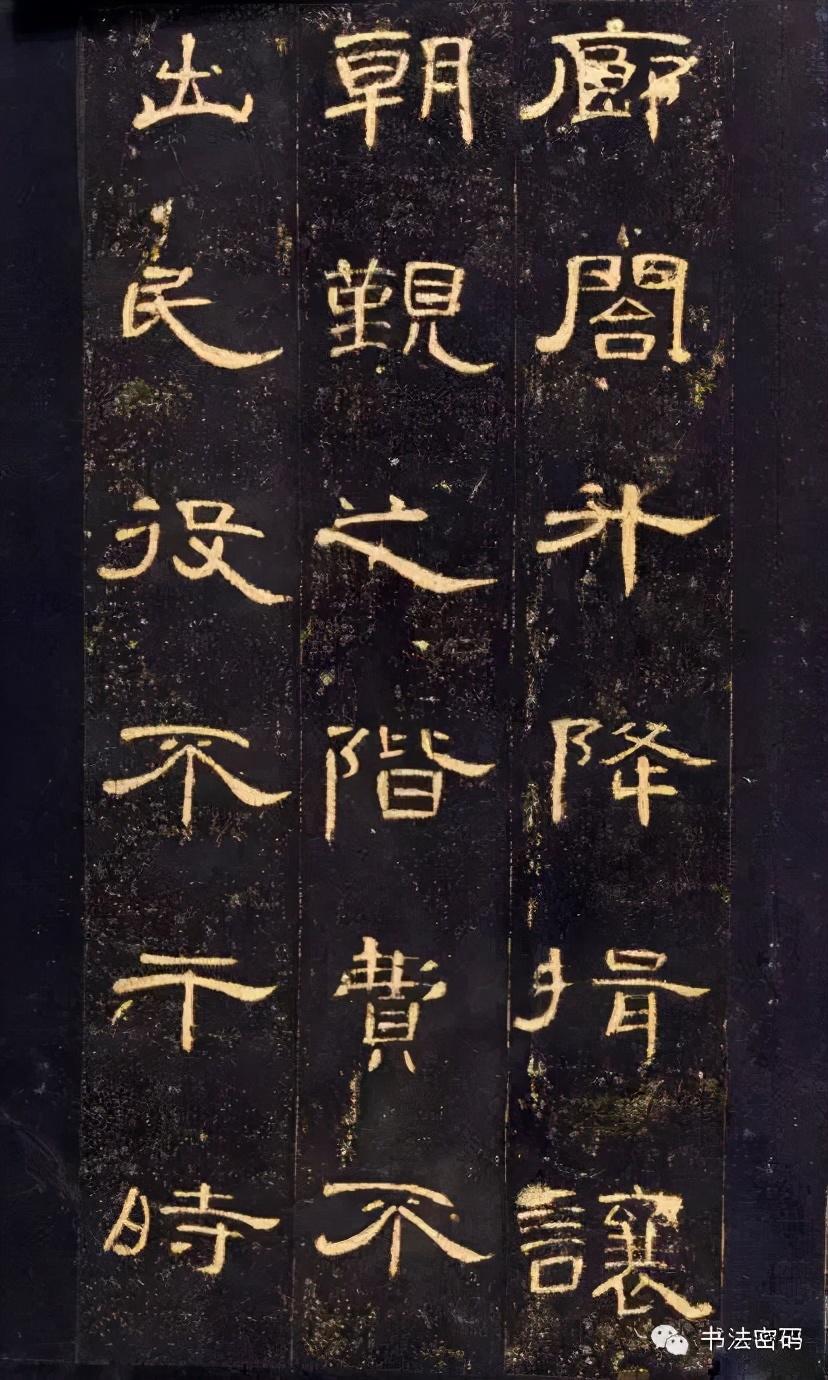 廊閣升降揖讓
朝覲之階費不
出民役不干時
书法密码